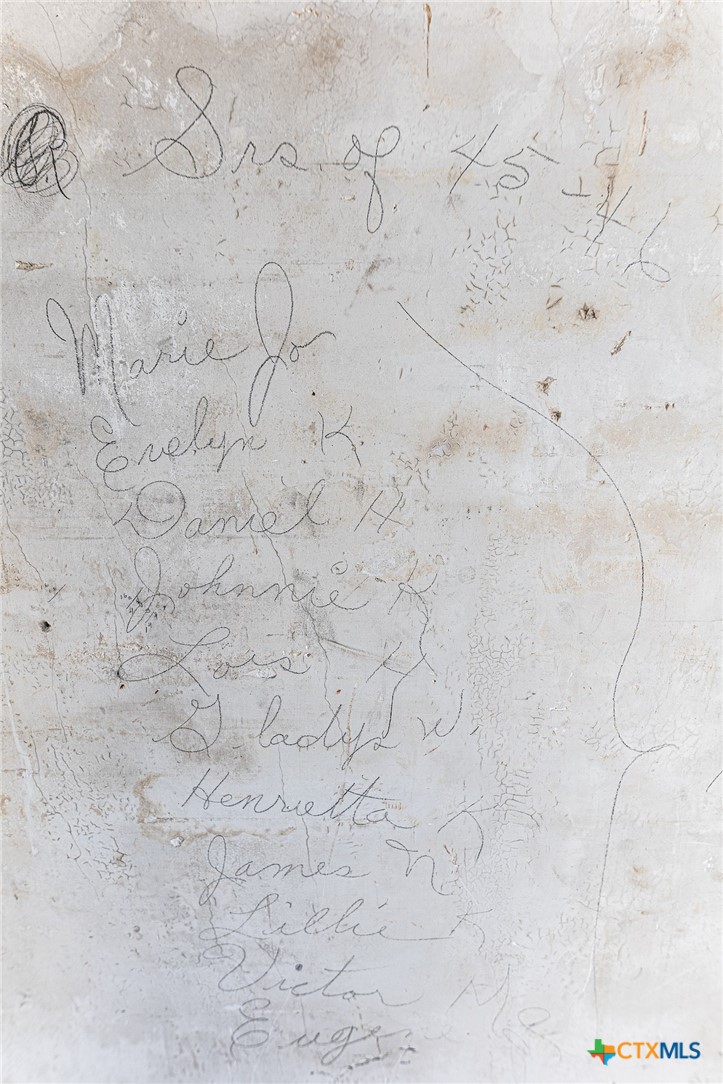 Srs. of 45-46
Marie Jo
Evelyn K.
Daniel H
Johnnie K
Lois H
Gladys W.
Henrietta K
James N
Lillie K
Victor Mc
CTXMLS